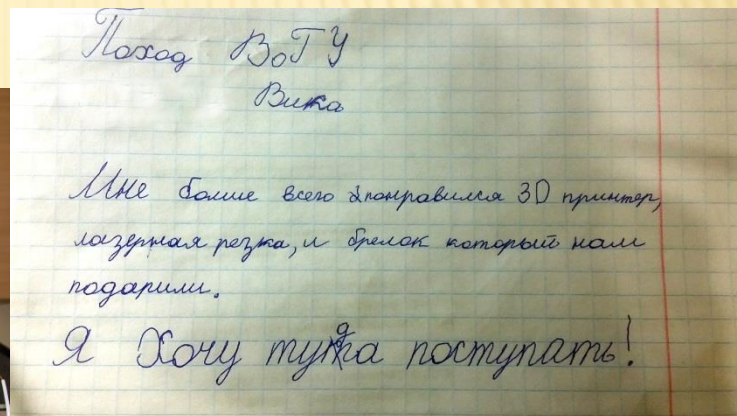 Поход ВоГУ
Вика
Мне болше всего понравился 3D принтер,
лазерная резка, и брелок который нам
подарили.
Я Хочу туда поступать!